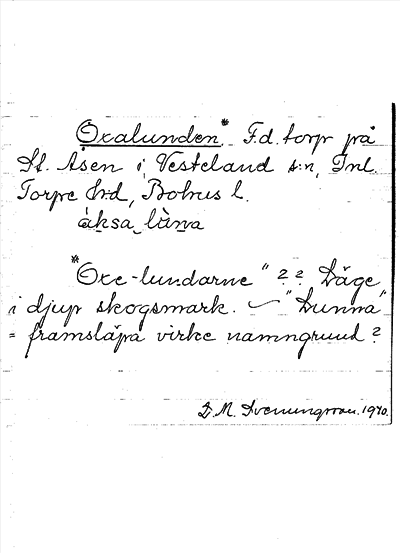 Oxalunden.* F.d. torp på
St. Åsen i Vesteland s:n, Inl.
Torpe h:d, Bohus l.
åksa_låna
*"Oxe-lundarne" ?? Läge
i djup skogsmark. — "Lunna"
= framsläpa virke namngrund?
S. M. Svenungsson. 1940.